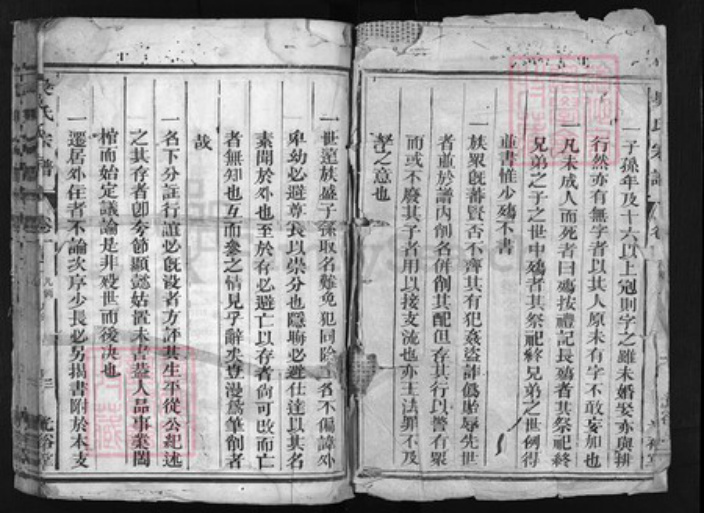 一子孫年及十六以上冠則字之雖未婚娶亦與排
行然亦有無字者以其人原未有字不敢妄加也
凡未成人而死者曰殤按禮記長殤者其祭祀終
兄弟之子之世中殤者其祭祀終兄弟之世例得
並書惟少殤不書
一族眾既蕃賢否不齊其有犯姦盜詐偽貽辱先世
者並於譜內削名併削其配但存其行以警有眾
而或不廢其子者用以接支流也亦王法罪不及
孥之意也
一世遠族盛子孫取名難免犯同除二名不偏諱外
卑幼必避尊長以崇分也隱晦必避仕達以其名
素聞於外也至於存必避亡以存者尚可改而亡
者無知也互而參之情見乎辭矣豈漫為筆削者
哉
一名下分註行誼必既沒者方評其生平從公紀述
之其存者卽夸節顯懿姑置未書蓋人品事業闔
棺而始定議論是非歿世而後決也
一遷居外住者不論次序少長必另揭書附於本支
吳氏宗譜
卷
凡例
三
光裕堂